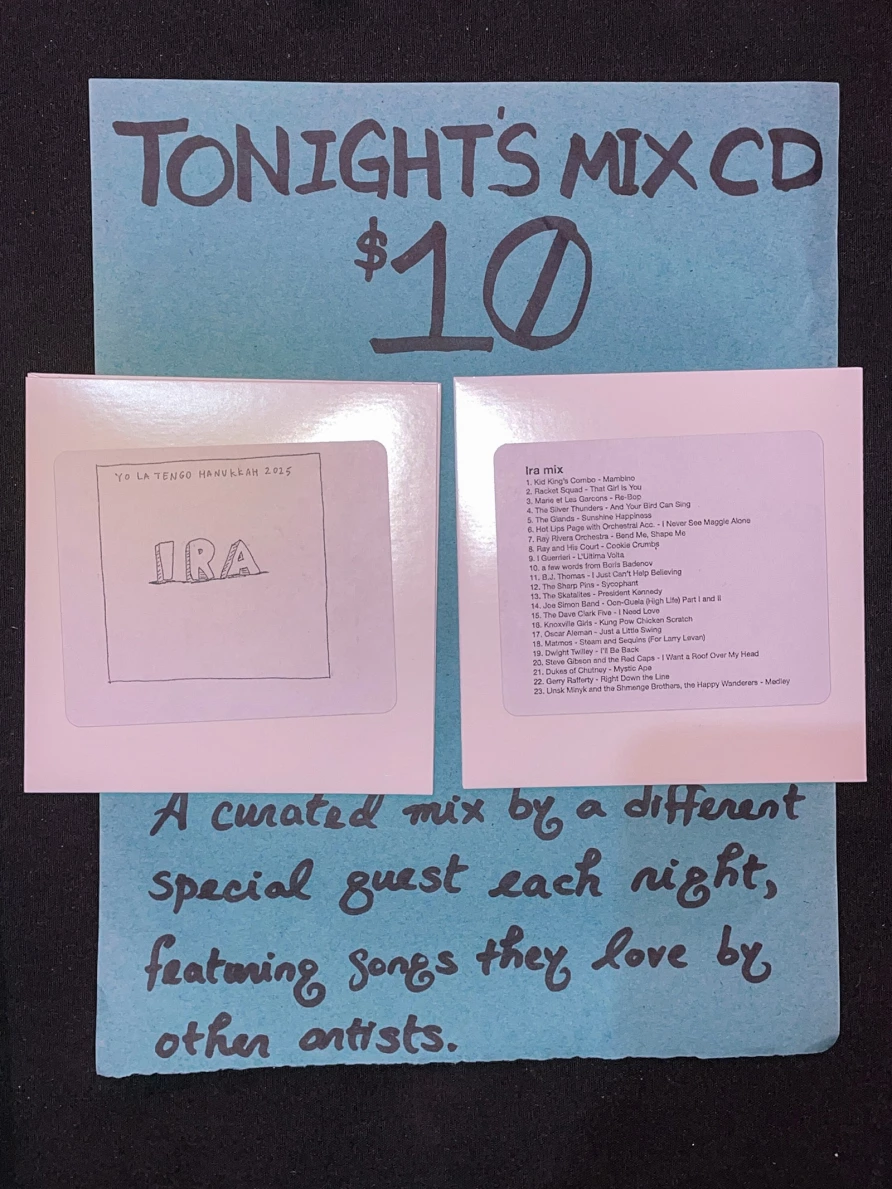 TONIGHT'S MIX CD
$10
YO LA TENGO HANUKKAH 2025
IRA
Ira mix
1. Kid King's Combo - Mambino
2. Racket Squad - That Girl Is You
3. Marie et Les Garcons - Re-Bop
4. The Silver Thunders - And Your Bird Can Sing
5. The Glands - Sunshine Happiness
6. Hot Lips Page with Orchestral Acc. - I Never See Maggie Alone
7. Ray Rivera Orchestra - Bend Me, Shape Me
8. Ray and His Court - Cookie Crumbs
9. I Guerrieri - L'Ultima Volta
10. a few words from Boris Badenov
11. B.J. Thomas - I Just Can't Help Believing
12. The Sharp Pins - Sycophant
13. The Skatalites - President Kennedy
14. Joe Simon Band - Oon-Guela (High Life) Part I and II
15. The Dave Clark Five - I Need Love
16. Knoxville Girls - Kung Pow Chicken Scratch
17. Oscar Aleman - Just a Little Swing
18. Matmos - Steam and Sequins (For Larry Levan)
19. Dwight Twilley - I'll Be Back
20. Steve Gibson and the Red Caps - I Want a Roof Over My Head
21. Dukes of Chutney - Mystic Ape
22. Gerry Rafferty - Right Down the Line
23. Linsk Minyk and the Shmenge Brothers, the Happy Wanderers - Medley
A curated mix by a different
special guest each night,
featuring songs they love by
other artists.